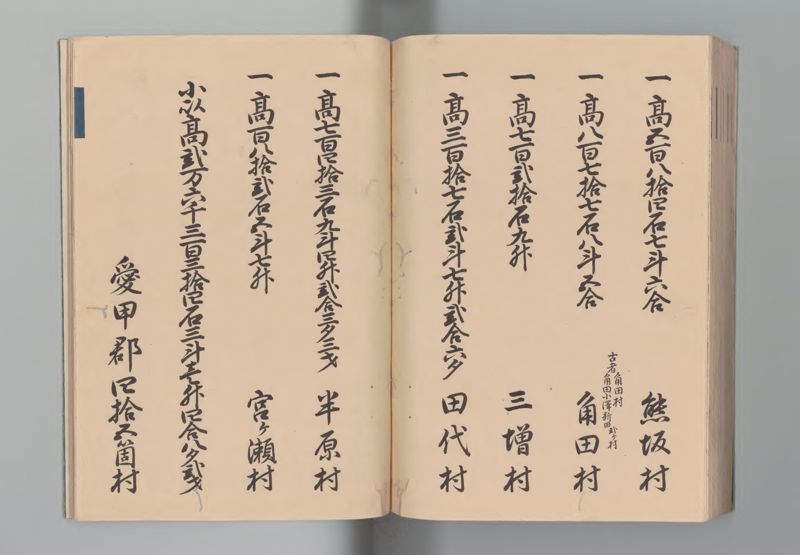 一高五百八拾四石七斗六合 熊坂村
一高八百七拾七石八斗五合 角田村
古者角田村
角田小澤新田弐ヶ村
一高七百弐拾石九升 三増村
一高三百拾七石弐斗七升弐合六夕 田代村
一高七百四拾三石九斗四升弐合三夕三才 半原村
一高百八拾弐石五斗七升 宮ヶ瀬村
小以高弐万六千三百三拾四石三斗壱升四合八夕弐才
愛甲郡四拾五箇村